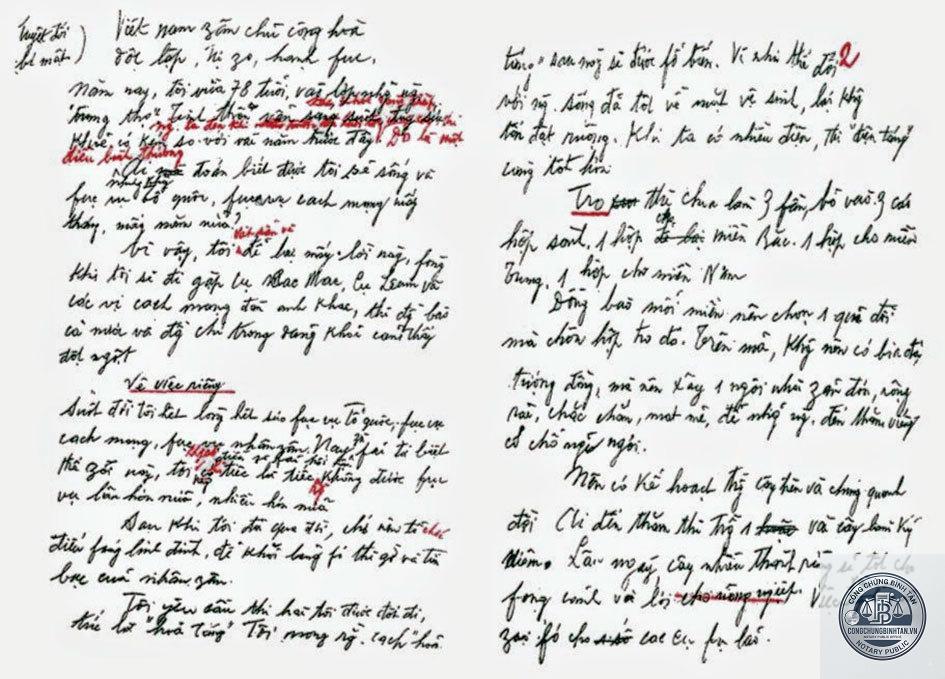 Tuyệt đối
bí mật )
Việt nam zân chủ cộng hoà
độc lập, tự zo, hạnh fúc,
Năm nay, tôi vừa 78 tuổi, vào lớp những ng.
"trung thọ". Tinh thần vẫn sáng suốt, thân thể
khoẻ, có kém so với vài năm trước đây. Đó là một
điều bình thường
Ai mà đoán biết được tôi sẽ sống và
fục vụ tổ quốc, fục vụ cách mạng mấy
tháng, mấy năm nữa?
Vì vậy, tôi để lại mấy lời này, fòng
khi tôi sẽ đi gặp cụ Các Mác, cụ Lênin và
các vị cách mạng đàn anh khác, thì đ. bào
cả nước và đ. chí trong đảng khỏi cảm thấy
đột ngột
Về việc riêng
Suốt đời tôi hết lòng hết sức fục vụ tổ quốc, fục vụ
cách mạng, fục vụ nhân zân. Nay zù fải từ biệt
thế zới này, tôi tiếc là tiếc không được fục
vụ lâu hơn nữa, nhiều hơn nữa
Sau khi tôi đã qua đời, chớ nên tổ chức
điếu fúng linh đình, để khỏi lãng fí thì zờ và tiền
bạc của nhân zân.
Tôi yêu cầu thi hài tôi được đốt đi,
tức là "hoả táng" Tôi mong rằng cách "hoả
táng" sau này sẽ được fổ biến. Vì như thế đối 2
với ng. sống đã tốt về mặt vệ sinh, lại không
tốn đất ruộng. Khi ta có nhiều điện, thì "điện táng"
càng tốt hơn
Tro thì chia làm 3 fần, bỏ vào 3 cái
hộp sành, 1 hộp cho miền Bắc. 1 hộp cho miền
Trung, 1 hộp cho miền Nam
Đồng bào mỗi miền nên chọn 1 quả đồi
mà chôn hộp tro đó. Trên mả, không nên có bia đá
tượng đồng, mà nên xây 1 ngôi nhà zản đơn, rộng
rãi, chắc chắn, mát mẻ, để những ng. đến thăm viếng
có chỗ nghỉ ngơi.
Nên có kế hoạch trồng cây trên và chung quanh
đồi Ai đến thăm thì trồng 1 vài cây làm kỷ
niệm. Lâu ngày cây nhiều thành rừng sẽ tốt cho
fong cảnh và lợi cho nông nghiệp. Việc
zao fó cho các cụ fụ lão.
CÔNG CHỨNG BÌNH TÂN
CONGCHUNGBINHTAN.VN
NOTARY PUBLIC OFFICE
NOTARY PUBLIC